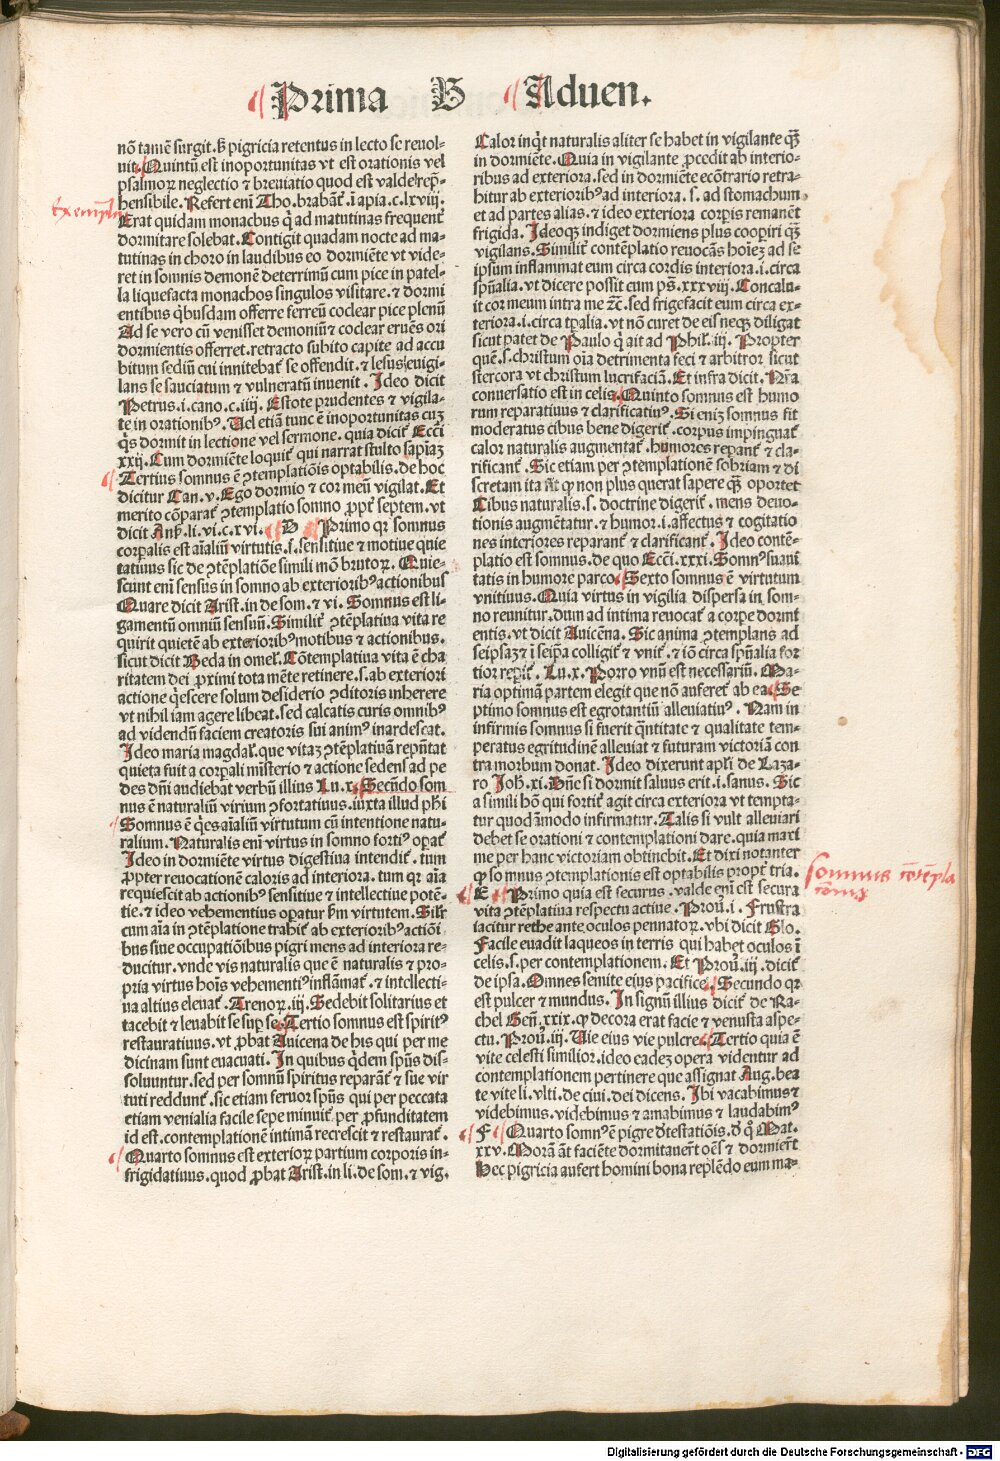 Prima B Aduen.
nõ tamẽ surgit. ß pigricia retentus in lecto se reuol-
uit. Quintũ est inoportunitas vt est orationis vel
psalmoꝝ neglectio ⁊ breuiatio quod est valde rep̃-
hensibile. Refert eni Tho. brabañ. ĩ apia. c. lxviij.
Exemplũ
Erat quidam monachus q̇ ad matutinas frequenť
dormitare solebat. Contigit quadam nocte ad ma-
tutinas in choro in laudibus eo dormiẽte vt vide-
ret in somnis demonẽ deterrimũ cum pice in patel-
la liquefacta monachos singulos visitare. ⁊ dormi
entibus q̇busdam offerre ferreũ coclear pice plenũ
Ad se vero cũ venisset demoniũ ⁊ coclear eruẽs ori
dormientis offerret. retracto subito capite ad accu
bitum sediũ cui innitebať se offendit. ⁊ lesus euigi-
lans se sauciatum ⁊ vulneratũ inuenit. Ideo dicit
Petrus. i. cano. c. iiij. Estote prudentes ⁊ vigila-
te in orationibꝰ. Ad etiã tunc ẽ inoportunitas cuȝ
q̇s dormit in lectione vel sermone. quia diciť Ecci
xxij. Cum dormiẽte loquiť qui narrat stulto sapiaȝ
Tertius somnus ẽ ↄtemplatiõis optabilis. de hoc
dicitur Can. v. Ego dormio ⁊ cor meũ vigilat. Et
merito cõparať ↄtemplatio somno ꝓpť septem. vt
dicit Anß. li. vi. c. xvi. D Primo qꝛ somnus
corpalis est aĩaliũ virtutis. s. sensitiue ⁊ motiue quie
tatiuus sic de ↄtẽplatiõe simili mõ brutoꝝ. Quie-
scunt eni sensus in somno ab exterioribꝰ actionibus
Quare dicit Arist. in de som. ⁊ vi. Somnus est li-
gamentũ omniũ sensuũ. Similiť ↄtẽplatiua vita re
quirit quietẽ ab exterioribꝰ motibus ⁊ actionibus.
sicut dicit Beda in omel. Cõtemplatiua vita ẽ cha
ritatem dei ꝓximi tota mẽte retinere. s. ab exteriori
actione q̇escere solum desiderio ↄditoris inherere
vt nihil iam agere libeat. sed calcatis curis omnibꝰ
ad videndũ faciem creatoris sui animꝰ inardescat.
Ideo maria magdal. que vitaȝ ↄtẽplatiuã rep̃ntat
quieta fuit a corpali mĩsterio ⁊ actione sedens ad pe
des dñi audiebat verbũ illius Lu. x. Secũdo som
nus ẽ naturaliũ virium ↄfortatiuus. iuxta illud ph̃i
Somnus ẽ q̇es aĩaliũ virtutum cũ intentione natu-
ralium. Naturalis eni virtus in somno fortiꝰ opať
Ideo in dormiẽte virtus digestiua intendiť. tum
ꝓpter reuocationẽ caloris ad interiora. tum qꝛ aĩa
requiescit ab actionibꝰ sensitiue ⁊ intellectiue potẽ-
tie. ⁊ ideo vehementius opatur ẜm virtutem. Silť
cum aĩa in ↄtẽplatione trahiť ab exterioribꝰ actiõi
bus siue occupatiõibus pigri mens ad interiora re-
ducitur. vnde vis naturalis que ẽ naturalis ⁊ pro-
pria virtus hoĩs vehementiꝰ inflãmať. ⁊ intellecti-
ua altius eleuať. Trenoꝝ. iij. Sedebit solitarius et
tacebit ⁊ leuabit se sup se. Tertio somnus est spiritꝰ
restauratiuus. vt ꝓbat Auicena de his qui per me
dicinam sunt euacuati. In quibus q̇dem sp̃ns dis-
soluuntur. sed per somnũ spiritus reparãť ⁊ sue vir
tuti redduntť. sic etiam feruoꝛ sp̃ns qui per peccata
etiam venialia facile sepe minuiť. per ꝓfunditatem
id est. contemplationẽ intimã recrescit ⁊ restaurať.
Quarto somnus est exterioꝝ partium corporis in-
frigidatiuus. quod ꝓbat Arist. in li. de som. ⁊ vig.
Calor inq̇t naturalis aliter se habet in vigilante q̃ȝ
in dormiẽte. Quia in vigilante ꝓcedit ab interio-
ribus ad exteriora. sed in dormiẽte ecõtrario retra-
hitur ab exterioribꝰ ad interiora. s. ad stomachum
et ad partes alias. ⁊ ideo exteriora corpis remanẽt
frigida. Ideoqȝ indiget dormiens plus cooperi q̃ȝ
vigilans. Similiť contẽplatio reuocãs hoĩeȝ ad se
ip̃sum inflammat eum circa cordis interiora. i. circa
sp̃nalia. vt dicere possit cum pš. xxxviij. Concalu-
it cor meum intra me ⁊c̃. sed frigefacit eum circa ex-
teriora. i. circa tp̃alia. vt nõ curet de eis neqȝ diligat
sicut patet de Paulo q̇ ait ad Phil. iij. Propter
quẽ. s. christum oĩa detrimenta feci ⁊ arbitror sicut
stercora vt christum lucrifaciã. Et infra dicit. Nr̃a
conuersatio est in celis. Quinto somnus est humo
rum reparatiuus ⁊ clarificatiuꝰ. Si eniȝ somnus fit
moderatus cibus bene digeriť. corpus impinguať
calor naturalis augmentať. humores repanť ⁊ cla-
rificanť. Sic etiam per ↄtemplationẽ sobriam ⁊ di
scretam ita ñt ꝙ non plus querat sapere q̃ȝ oportet
Cibus naturalis. s. doctrine digeriť. mens deuo-
tionis augmẽtatur. ⁊ humor. i. affectus ⁊ cogitatio
nes interiores reparanť ⁊ clarificanť. Ideo contẽ-
platio est somnus. de quo Ecci. xxxi. Somnꝰ suaui
tatis in humore parco. Sexto somnus ẽ virtutum
vnitiuus. Quia virtus in vigilia dispersa in som-
no reunitur. dum ad intima reuocať a corpe dormi
entis. vt dicit Auicẽna. Sic anima ↄtemplans ad
seipsaȝ ⁊ ĩ seip̃a colligiť ⁊ vniť. ⁊ iõ circa sp̃nalia for
tior repiť. Lu. x. Porro vnũ est necessariũ. Ma-
ria optimã partem elegit que nõ auferetť ab ea. Se
ptimo somnus est egrotantiũ alleuiatiuꝰ. Nam in
infirmis somnus si fuerit q̃ntitate ⁊ qualitate tem-
peratus egritudinẽ alleuiat ⁊ futuram victoriã con
tra morbum donat. Ideo dixerunt apl̃i de Laza-
ro Joh. xi. Dñe si dormit saluus erit. i. sanus. Sic
a simili hõ qui fortiť agit circa exteriora vt tempta-
tur quodãmodo infirmatur. Talis si vult alleuiari
debet se orationi ⁊ contemplationi dare. quia maxi
me per hanc victoriam obtinebit. Et dixi notanter
ꝙ somnus ↄtemplationis est optabilis propť tria.
somnus cõtẽpla
tõnis
E Primo quia est securus. valde eni est secura
vita ↄtẽplatiua respectu actiue. Prou. i. Frustra
iacitur rethe ante oculos pennatoꝝ. vbi dicit Glo.
Facile euadit laqueos in terris qui habet oculos ĩ
celis. s. per contemplationem. Et Prou. iij. diciť
de ipsa. Omnes semite eius pacifice. Secundo qꝛ
est pulcer ⁊ mundus. In signũ illius diciť de Ra-
chel Geñ. xxix. ꝙ decora erat facie ⁊ venusta aspe-
ctu. Prou. iij. Uie eius vie pulcre. Tertio quia ẽ
vite celesti similior. ideo eadeȝ opera videntur ad
contemplationem pertinere que assignat Aug. bea
te vite li. vlti. de ciui. dei dicens. Ibi vacabimus ⁊
videbimus. videbimus ⁊ amabimus ⁊ laudabimꝰ
F Quarto somnꝰ ẽ pigre ↄtestatiõis. d̾ q̊ Mat.
xxv. Morã ãt faciẽte dormitauerť oẽs ⁊ dormierť
Hec pigricia aufert homini bona replẽdo eum ma-
Digitalisierung gefördert durch die Deutsche Forschungsgemeinschaft - DFG